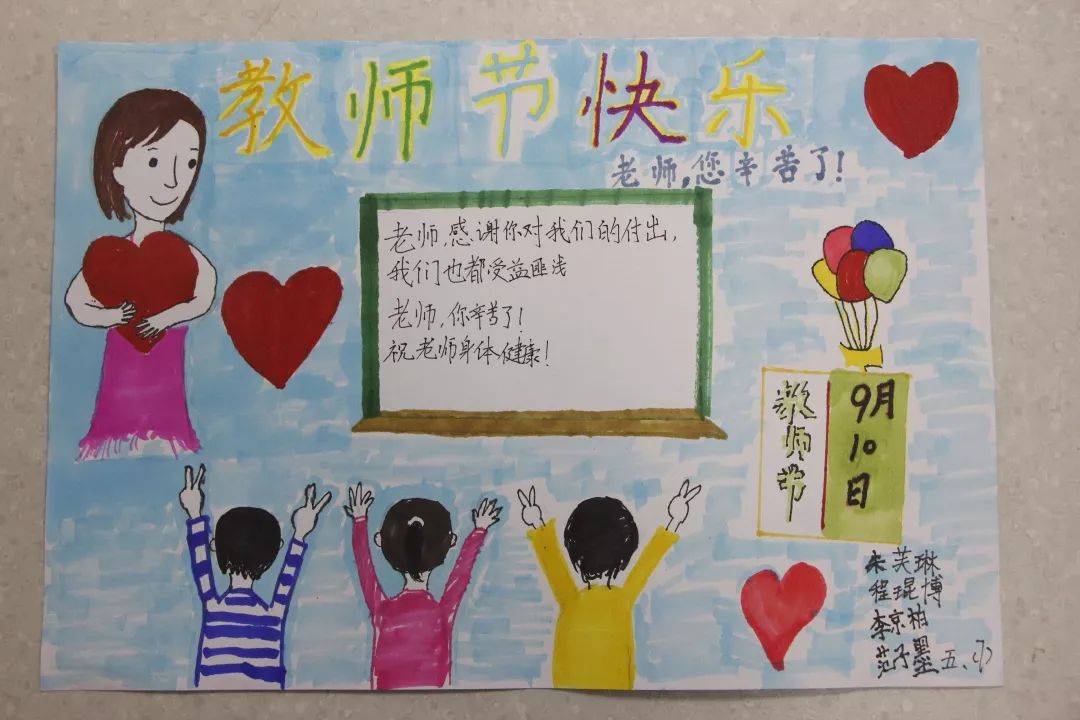 教师节快乐
老师,您辛苦了!
老师,感谢你对我们的付出,
我们也都受益匪浅
老师,你辛苦了!
祝老师身体健康!
教师节
9月10日
朱芙琳
程琨博
李京柏
范子墨 五、